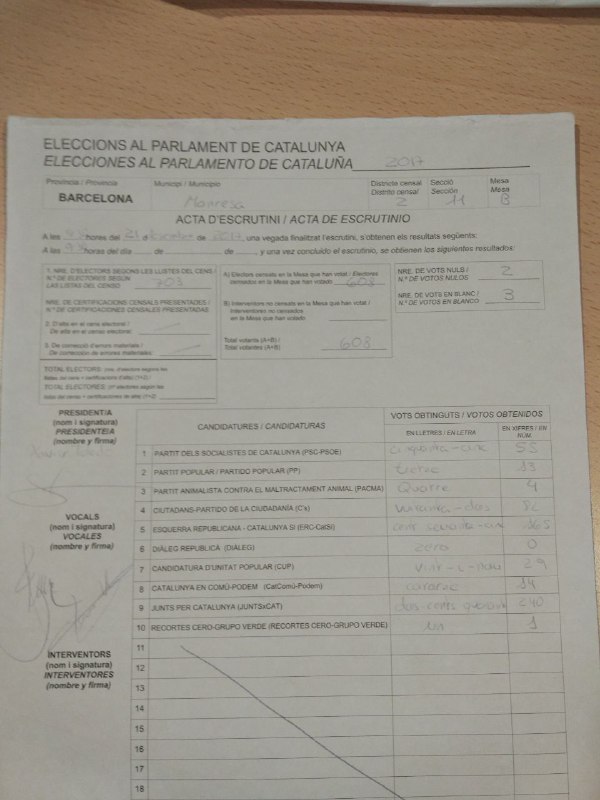 ELECCIONS AL PARLAMENT DE CATALUNYA
ELECCIONES AL PARLAMENTO DE CATALUÑA 2017
Provincia / Provincia Municipi / Municipio Districte censal Secció Mesa
Distrito censal Sección Mesa
BARCELONA Manresa 2 11 B
ACTA D'ESCRUTINI / ACTA DE ESCRUTINIO
A les hores del 21 d de 2017, una vegada finalitzat l'escrutini, s'obtenen els resultats següents:
A las horas del día de de , y una vez concluido el escrutinio, se obtienen los siguientes resultados:
1. NRE. D'ELECTORS SEGONS LES LLISTES DEL CENS /
N.º DE ELECTORES SEGÚN
LAS LISTAS DEL CENSO 703
NRE. DE CERTIFICACIONS CENSALS PRESENTADES /
N.º DE CERTIFICACIONES CENSALES PRESENTADAS
2. D'alta en el cens electoral /
De alta en el censo electoral:
3. De correcció d'errors materials /
De corrección de errores materiales:
TOTAL ELECTORS
TOTAL ELECTORES
A) Electors censats en la Mesa que han votat / Electores
censados en la Mesa que han votado 608
B) Interventors no censats en la Mesa que han votat /
Interventores no censados
en la Mesa que han votado
Total votants (A+B) /
Total votantes (A+B) 608
NRE. DE VOTS NULS /
N.º DE VOTOS NULOS 2
NRE. DE VOTS EN BLANC /
N.º DE VOTOS EN BLANCO 3
PRESIDENT/A
(nom i signatura)
PRESIDENTE/A
(nombre y firma)
VOCALS
(nom i signatura)
VOCALES
(nombre y firma)
INTERVENTORS
(nom i signatura)
INTERVENTORES
(nombre y firma)
CANDIDATURES / CANDIDATURAS VOTS OBTINGUTS / VOTOS OBTENIDOS
EN LLETRES / EN LETRA EN XIFRES / EN NUM.
1 PARTIT DELS SOCIALISTES DE CATALUNYA (PSC-PSOE) 55
2 PARTIT POPULAR / PARTIDO POPULAR (PP) tretze 13
3 PARTIT ANIMALISTA CONTRA EL MALTRACTAMENT ANIMAL (PACMA) Quatre 4
4 CIUTADANS-PARTIDO DE LA CIUDADANÍA (C's) vuitanta-dos 82
5 ESQUERRA REPUBLICANA - CATALUNYA SÍ (ERC-CatSí) 165
6 DIÀLEG REPUBLICÀ (DIÀLEG) zero 0
7 CANDIDATURA D'UNITAT POPULAR (CUP) vint-i-nou 29
8 CATALUNYA EN COMÚ-PODEM (CatComú-Podem) catorze 14
9 JUNTS PER CATALUNYA (JUNTSxCAT) dos-cents quaranta 240
10 RECORTES CERO-GRUPO VERDE (RECORTES CERO-GRUPO VERDE) un 1
11
12
13
14
15
16
17
18